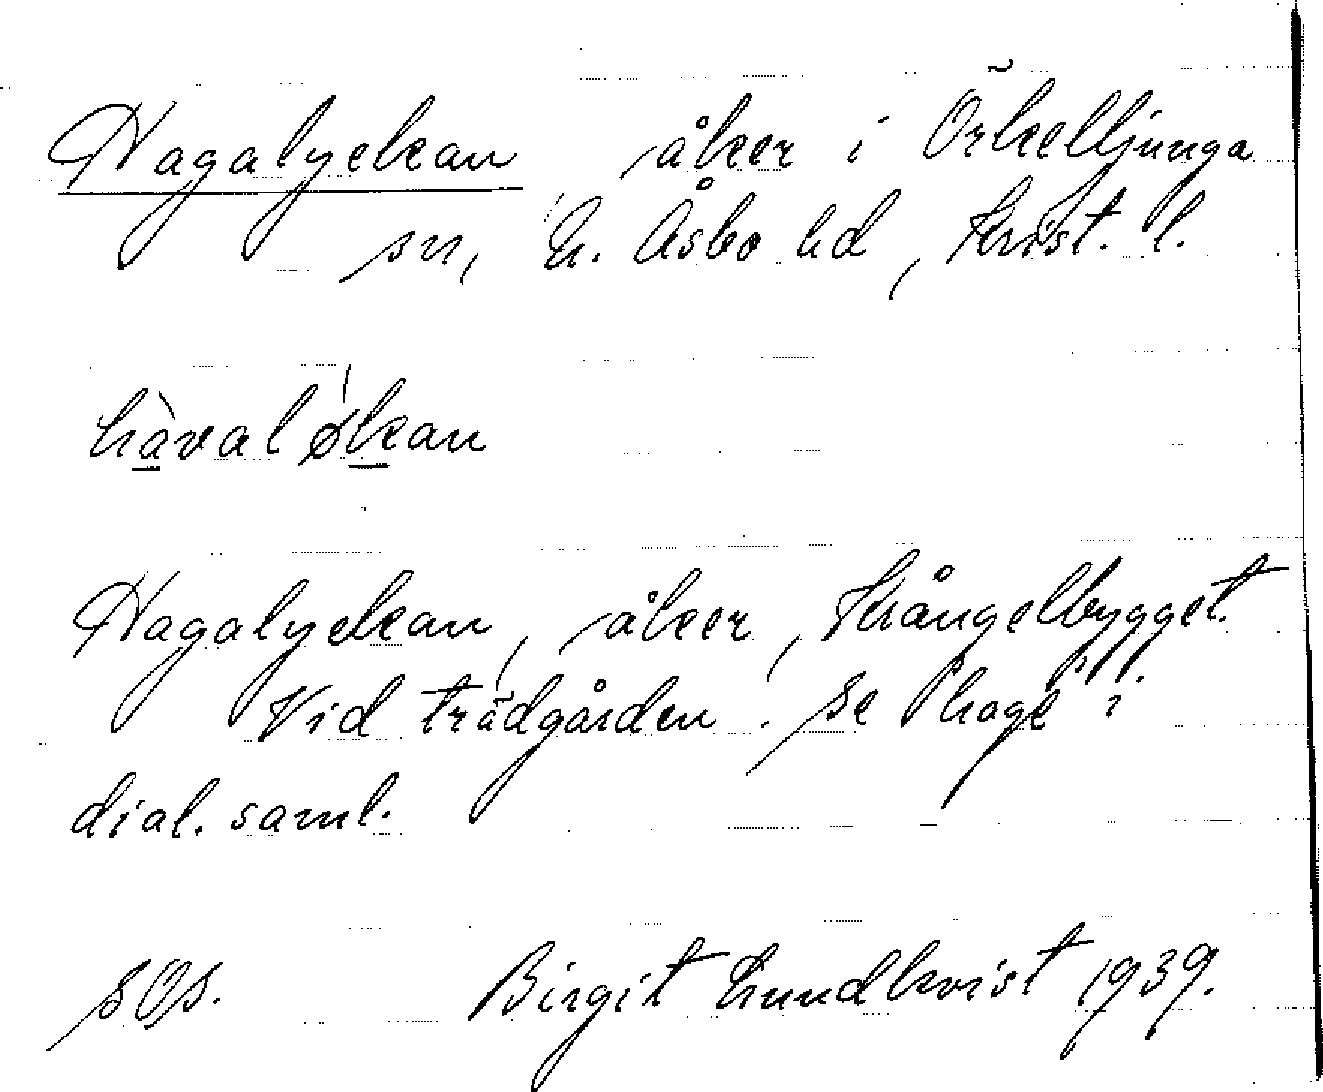 Hagalyckan åker i Örkelljunga
sn, N. Åsbo hd, Krist. l.
hàvaløkan
Hagalyckan, åker, Krångelbygget.
Vid trädgården. Se "hage" i
dial. saml.
SOS. Birgit Lundkvist 1939.